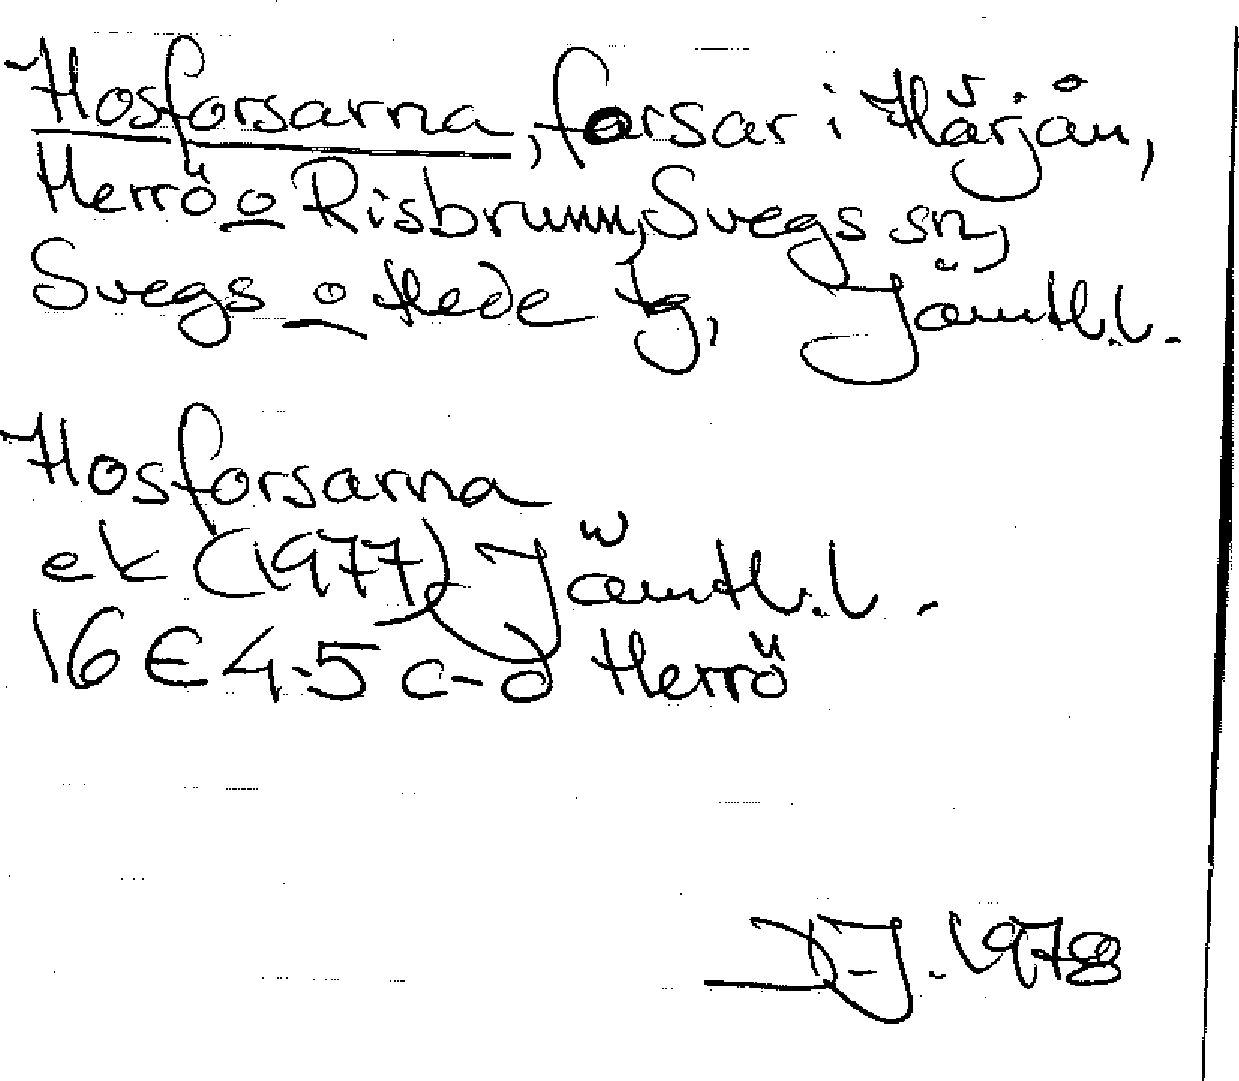 Hosforsarna, forsar i Härjån,
Herrö o Risbrunn, Svegs sn,
Svegs o Hede tg, Jämtl.l.
Hosforsarna
ek (1977) Jämtl.l.
16E 4-5 c-d Herrö
1978